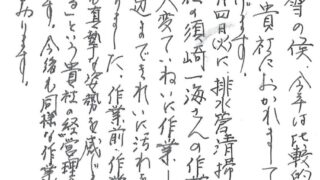 雪の候、今年は比較的
貴社におかれまして
ます。
月四日(火)に排水管清掃
社の須崎一海さんの作業
大変ていねいに作業し
辺まできれいに汚れを
りました。作業前、作業
も真摯な姿勢を感じ
る」という貴社の経営理
す。今後も同様な作業
おります。